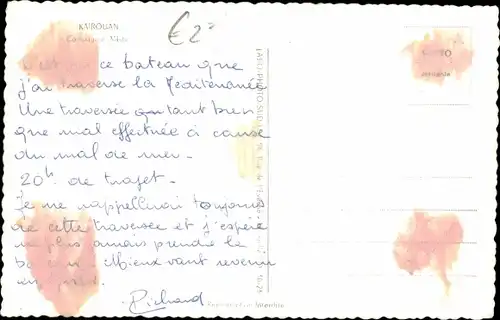 KAIROUAN
€2
C'est sur ce bateau que
j'ai traversé la Mediterranée
Une traversée autant bien
que mal effectuée à cause
du mal de mer.
20h de trajet.
Je me rappellerai toujours
de cette traversée et j'espère
ne plus jamais prendre le
bateau. Mieux vaut revenir
Richard
Reproduction Interdite